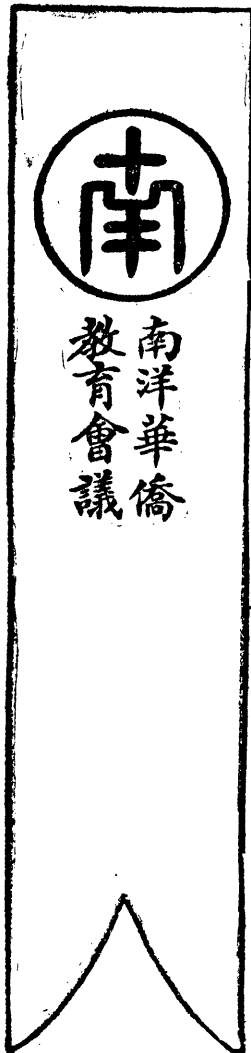 南
南洋華僑
教育會議